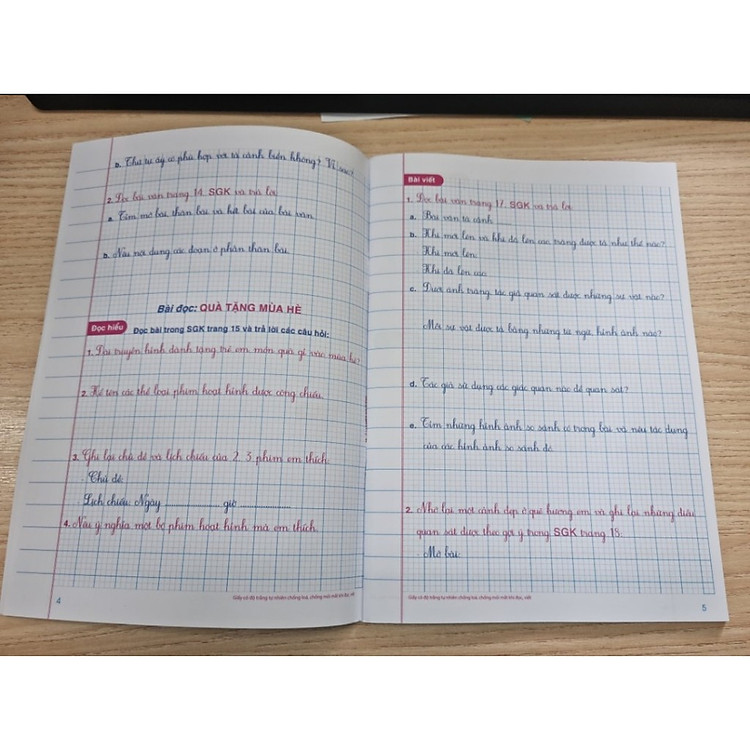 b. Thứ tự ấy có phù hợp với tả cảnh biển không? Vì sao?
2. Đọc bài văn trang 14, SGK và trả lời:
a. Tìm mở bài, thân bài và kết bài của bài văn.
b. Nêu nội dung các đoạn ở phần thân bài.
Bài đọc: QUÀ TẶNG MÙA HÈ
Đọc hiểu
Đọc bài trong SGK trang 15 và trả lời các câu hỏi:
1. Đài truyền hình dành tặng trẻ em món quà gì vào mùa hè?
2. Kể tên các thể loại phim hoạt hình được công chiếu.
3. Ghi lại chủ đề và lịch chiếu của 2, 3 phim em thích.
Chủ đề:
Lịch chiếu: Ngày .................. giờ ..................
4. Nêu ý nghĩa một bộ phim hoạt hình mà em thích.
Giấy có độ trắng tự nhiên chống loá, chống mỏi mắt khi đọc, viết
4
Bài viết
1. Đọc bài văn trang 17, SGK và trả lời:
a. Bài văn tả cảnh:
b. Khi mới lên và khi đã lên cao, trăng được tả như thế nào?
Khi mới lên:
Khi đã lên cao:
c. Dưới ánh trăng, tác giả quan sát được những sự vật nào?
Mỗi sự vật được tả bằng những từ ngữ, hình ảnh nào?
d. Tác giả sử dụng các giác quan nào để quan sát?
e. Tìm những hình ảnh so sánh có trong bài và nêu tác dụng
của các hình ảnh so sánh đó.
2. Nhớ lại một cảnh đẹp ở quê hương em và ghi lại những điều
quan sát được theo gợi ý trong SGK trang 18:
Mở bài:
Giấy có độ trắng tự nhiên chống loá, chống mỏi mắt khi đọc, viết
5